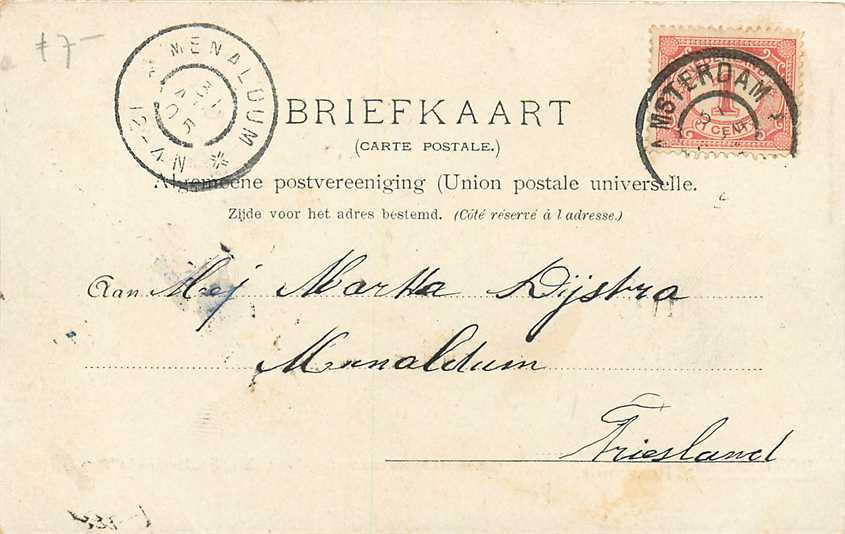 f 7—
MENALDUM
12-4 N
AMSTERDAM
1 CENT
BRIEFKAART
(CARTE POSTALE.)
Algemeene postvereeniging (Union postale universelle.
Zijde voor het adres bestemd. (Côté réservé à l adresse.)
Aan Mej Martha Dijstra
Menaldum
Friesland